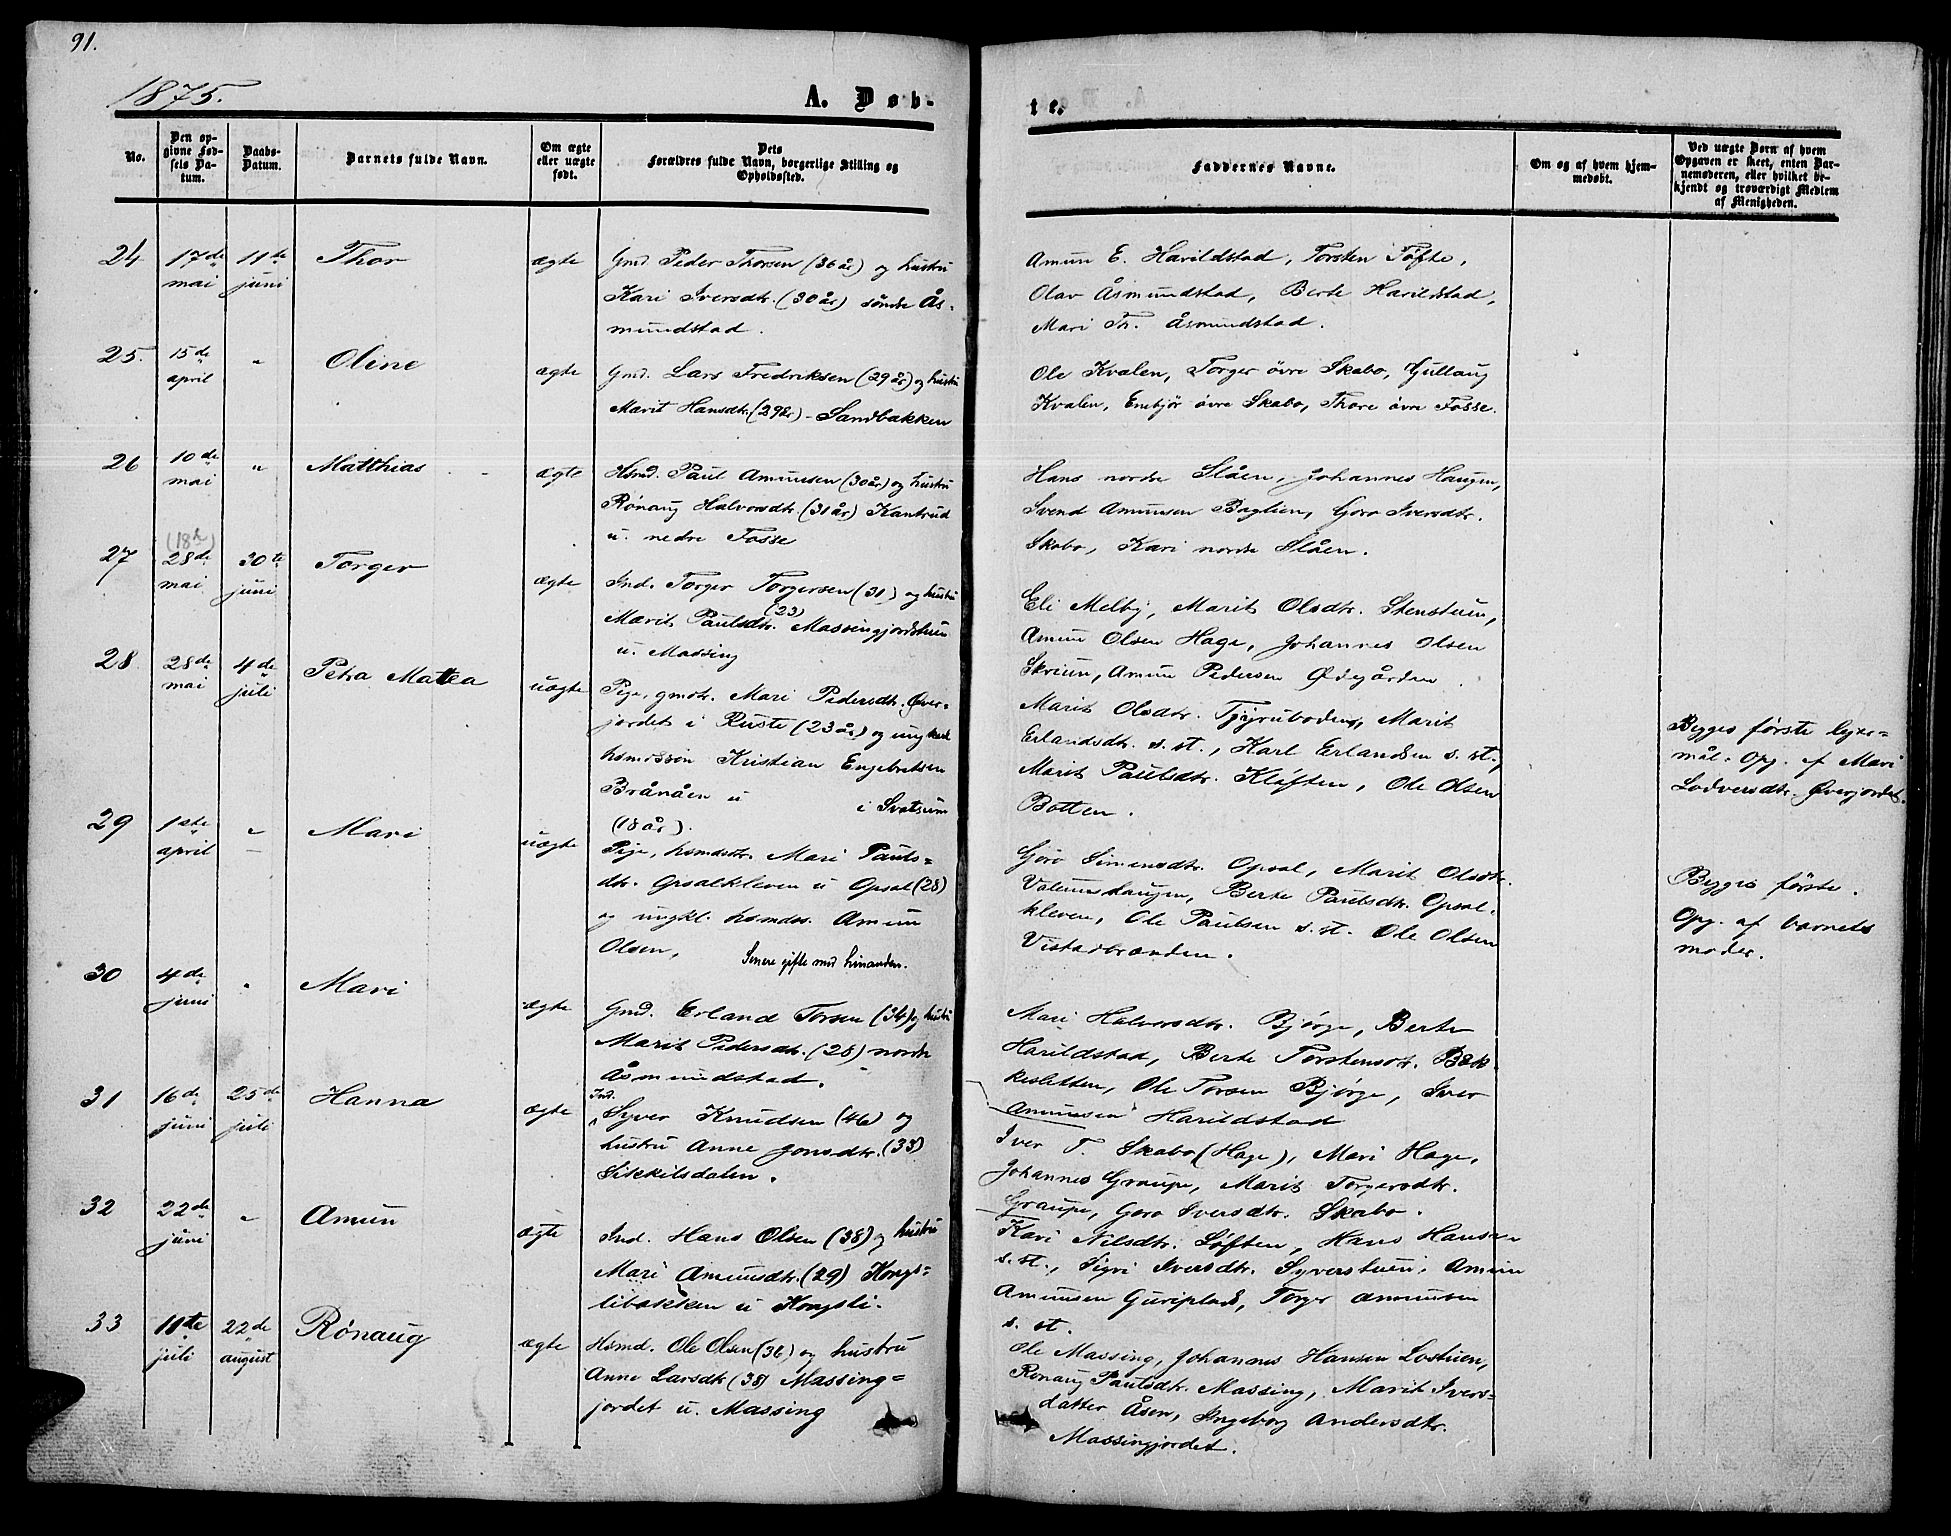 91.
1875.
A. Døb-
te.
No.
Den op-
givne Fød-
sels Da-
tum.
Daabs-
Datum.
Barnets fulde Navn.
Om ægte
eller uægte
født.
Dets
Forældres fulde Navn, borgerlige Stilling og
Opholdssted.
Faddernes Navne.
Om og af hvem hjem-
medøbt.
Ved uægte Børn af hvem
Opgaven er skeet, enten Bar-
nemoderen, eller hvilket be-
kjendt og troværdigt Medlem
af Menigheden.
24
17de
mai
11te
juni
Thor
ægte
Gmd. Peder Thorsen (36 år) og hustru
Kari Iversdtr. (30 år) søndre Ås-
mundstad.
Amun E. Harildstad, Torsten Tofte,
Olav Åsmundstad, Berte Harildstad,
Mari Th. Åsmundstad.
25.
15de
april
"
Oline
ægte
Gmd. Lars Fredriksen (29 år) og hustru
Marit Hansdtr. (29 år) - Sandbakken
Ole Kvalen, Torger övre Skabo, Gullaug
Kvalen, Enbjör övre Skabo, Thore övre Fosse.
26
10de
mai
"
Matthias
ægte
Hsmd. Paul Amunsen (30 år) og hustru
Rönaug Halvorsdtr. (31 år) Kantrud
u. nedre Fosse
Hans nordre Slåen, Johannes Haugen,
Svend Amunsen Baglien, Goro Iversdtr.
Skabo, Kari nordre Slåen.
27
(18de)
28de
mai
30te
juni
Torger
ægte
Ind. Torger Torgersen (31) og hustru
Marit Paulsdtr. (23) Massingjordstuen
u. Massing
Eli Melby, Marit Olsdtr. Stenstuen,
Amun Olsen Hage, Johannes Olsen
Skriun, Amun Pedersen Ødegården.
28
28de
mai
4de
juli
Petra Mattea
uægte
Pige, gmdtr. Mari Pedersdtr. Øver-
jordet i Ruste (23 år) og ungkarl
hsmdssön Kristian Engebretsen
Brånåen u i Svatsum
(18 år).
Marit Olsdtr. Tjyruboden, Marit
Erlandsdtr. s. st., Karl Erlandsen s. st.,
Marit Paulsdtr. Klöften, Ole Olsen
Botten.
Begges første leyer=
mål. Opg. af Mari
Lodversdtr. Øverjordet.
29
1ste
april
"
Mari
uægte
Pige, hsmdsdtr. Mari Pauls=
dtr. Opsalkleven u Opsal (28)
og ungkl. hsmdss. Amun
Olsen,
Senere gifte med hinanden.
Göro Simensdtr. Opsal, Marit Olsdtr.
Valemshaugen, Berte Paulsdtr. Opsal-
kleven, Ole Paulsen s. st. Ole Olsen
Vistadbrænden.
Begges første.
Opg. af barnets
moder.
30
4de
juni
"
Mari
ægte
Gmd. Erland Torsen (34) og hustru
Marit Pedersdtr. (28) nordre
Åsmundstad.
Mari Halvorsdtr. Bjørge, Berte
Harildstad, Berte Torstensdtr. Bæk-
kesletten, Ole Torsen Bjørge, Iver
Amunsen Harildstad
31
16de
juni
25de
juli
Hanna
ægte
Ind.
Syver Knudsen (46) og
hustru Anne Jonsdtr. (33)
Sikkilsdalen.
Iver T. Skabo (Hage), Mari Hage,
Johannes Graupe, Marit Torgersdtr.
Graupe, Goro Iversdtr. Skabo.
32
22de
juni
"
Amun
ægte
Ind. Hans Olsen (38) og hustru
Mari Amunsdtr. (29) Kongs=
libakken u Kongsli.
Kari Nilsdtr. Løften, Hans Hansen
s. st., Sigri Iversdtr. Syverstuen, Amun
Amunsen Guriplads, Torger Amunsen
s. st.
33
11te
juli
22de
august
Rønaug
ægte
Hsmd. Ole Olsen (36) og hustru
Anne Larsdtr. (38) Massing=
jordet u. Massing
Ole Massing, Johannes Hansen Lostuen,
Rönaug Paulsdtr. Massing, Marit Ivers-
datter Åsen, Ingeborg Andersdtr.
Massingjordet.